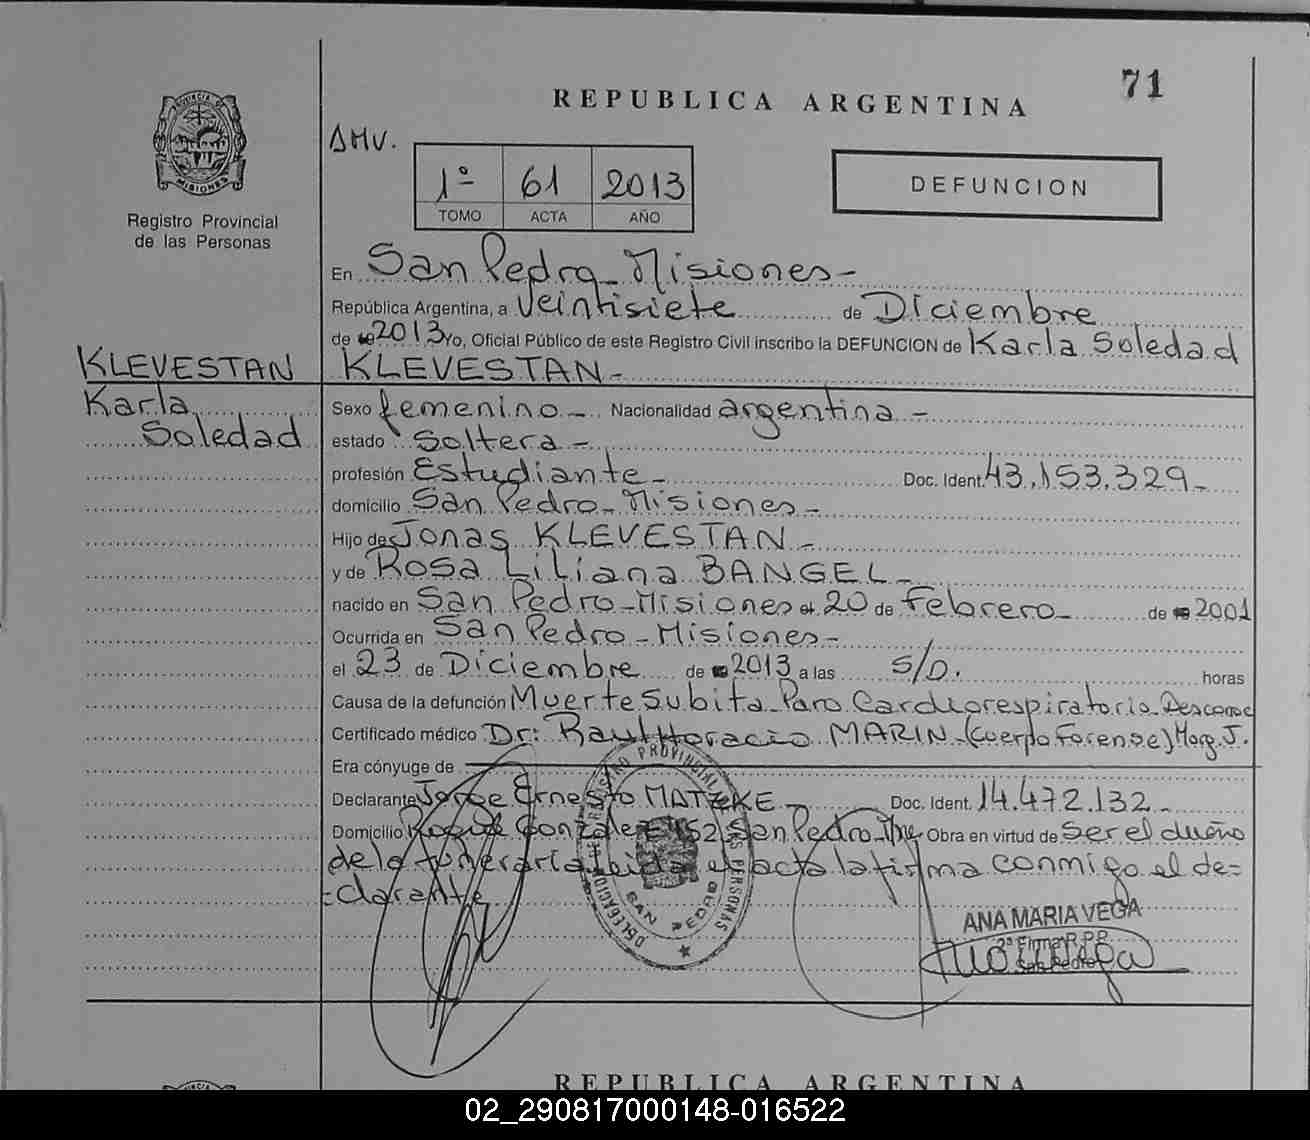 71
REPUBLICA ARGENTINA
PROVINCIA DE
MISIONES
Registro Provincial
de las Personas
AMV.
1º 61 2013
TOMO ACTA AÑO
DEFUNCION
En San Pedro - Misiones -
República Argentina, a Veintisiete de Diciembre
de 2013 Yo, Oficial Público de este Registro Civil inscribo la DEFUNCION de Karla Soledad
KLEVESTAN -
KLEVESTAN
Karla
Soledad
Sexo femenino - Nacionalidad argentina -
estado Soltera -
profesión Estudiante - Doc. Ident. 43.153.329 -
domicilio San Pedro - Misiones -
Hijo de Jonas KLEVESTAN -
y de Rosa Liliana BANGEL -
nacido en San Pedro - Misiones el 20 de Febrero - de 2001
Ocurrida en San Pedro - Misiones -
el 23 de Diciembre de 2013 a las S/D. horas
Causa de la defunción Muerte Subita - Paro Cardiorespiratorio -
Certificado médico Dr: Raul Horacio MARIN - (Cuerpo Forense)
Era cónyuge de
Declarante Jorge Ernesto Doc. Ident. 14.472.132 -
Domicilio Roque Gonzalez 152 San Pedro - Obra en virtud de Ser el dueño
de la funeraria leida el acta la firma conmigo el de=
=clarante
DELEGACION REGISTRO PROVINCIAL DE LAS PERSONAS
SAN PEDRO
ANA MARIA VEGA
2ª Firma R.P.P.
San Pedro
REPUBLICA ARGENTINA
02_290817000148-016522